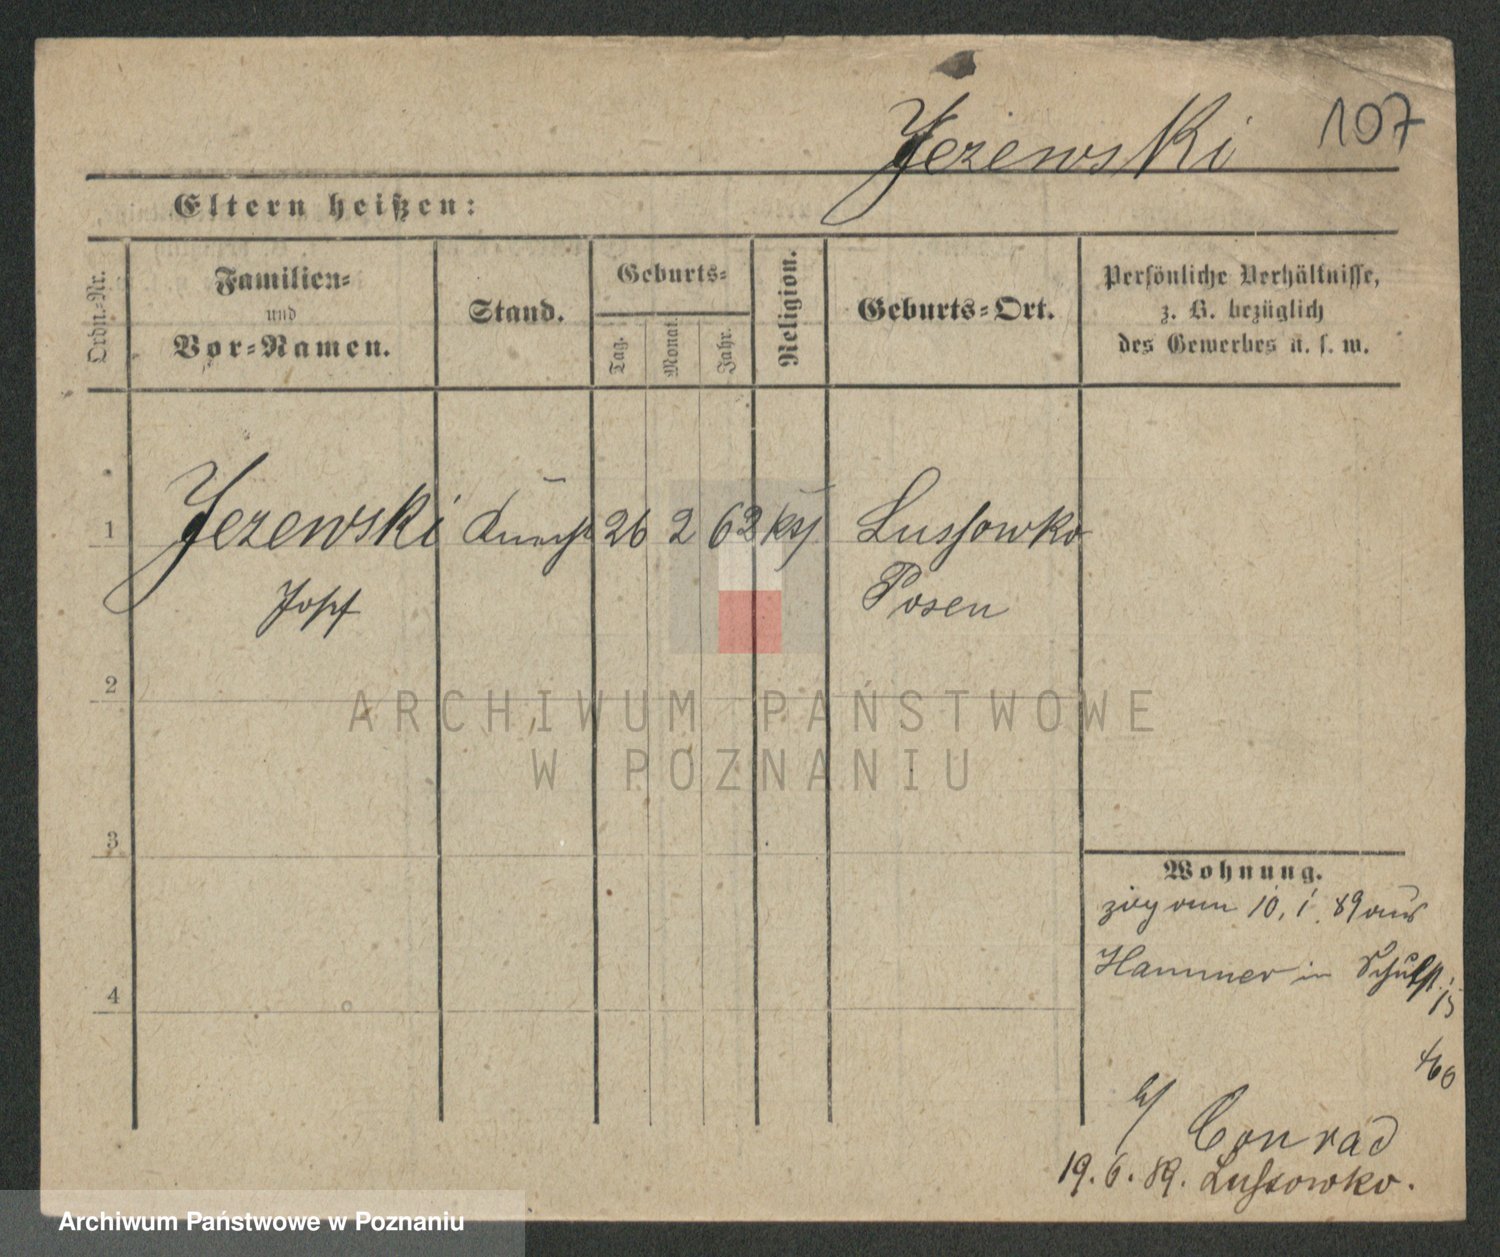 Jezewski 107
Eltern heißen:
Ordn.-Nr.
Familien-
und
Vor-Namen.
Stand.
Geburts-
Tag.
Monat.
Jahr.
Religion.
Geburts-Ort.
Persönliche Verhältnisse,
z. B. bezüglich
des Gewerbes u. s. w.
1 Jezewski 26 2 62 Lussowko
Josef Posen
2
ARCHIWUM PAŃSTWOWE
W POZNANIU
3
Wohnung.
10. 1. 89 aus
Hammer in Schulstr. 15
4
b/ Conrad
19. 6. 89. Lussowko.
Archiwum Państwowe w Poznaniu